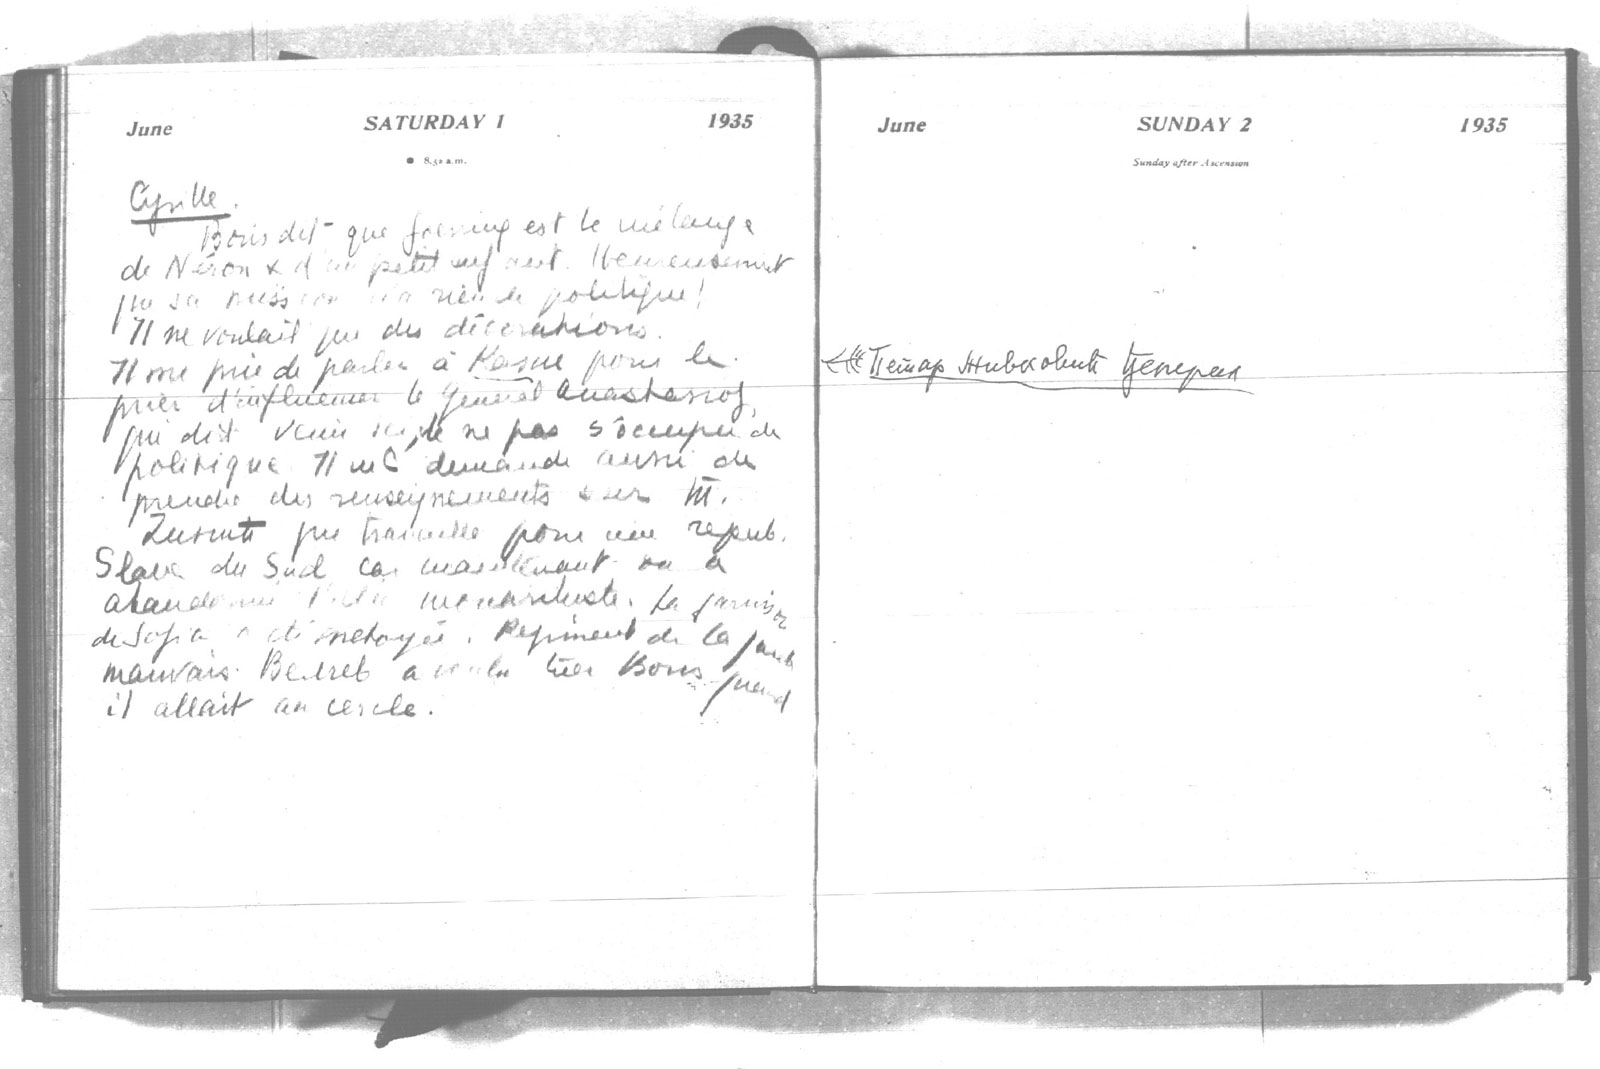 June SATURDAY 1 1935
8.52 a.m.
Cyrille.
Boris dit que Goering est le mélange
de Néron & d'un petit enfant. Heureusement
que sa mission n'a rien de politique!
Il ne voulait que des décorations.
Il me prie de parler à pour le
prier d'influencer le Général Anastassof,
qui dit de ne pas s'occuper de
politique. Il me demande aussi de
prendre des renseignements sur M.
qui travaille pour une repub.
Slave du Sud car maintenant on a
abandonné monarchiste. La garnison
de Sofia a été nettoyée. Regiment de la garde
mauvais. a voulu tuer Boris quand
il allait au cercle.
June SUNDAY 2 1935
Sunday after Ascension
Петар Живковић Ђенерал